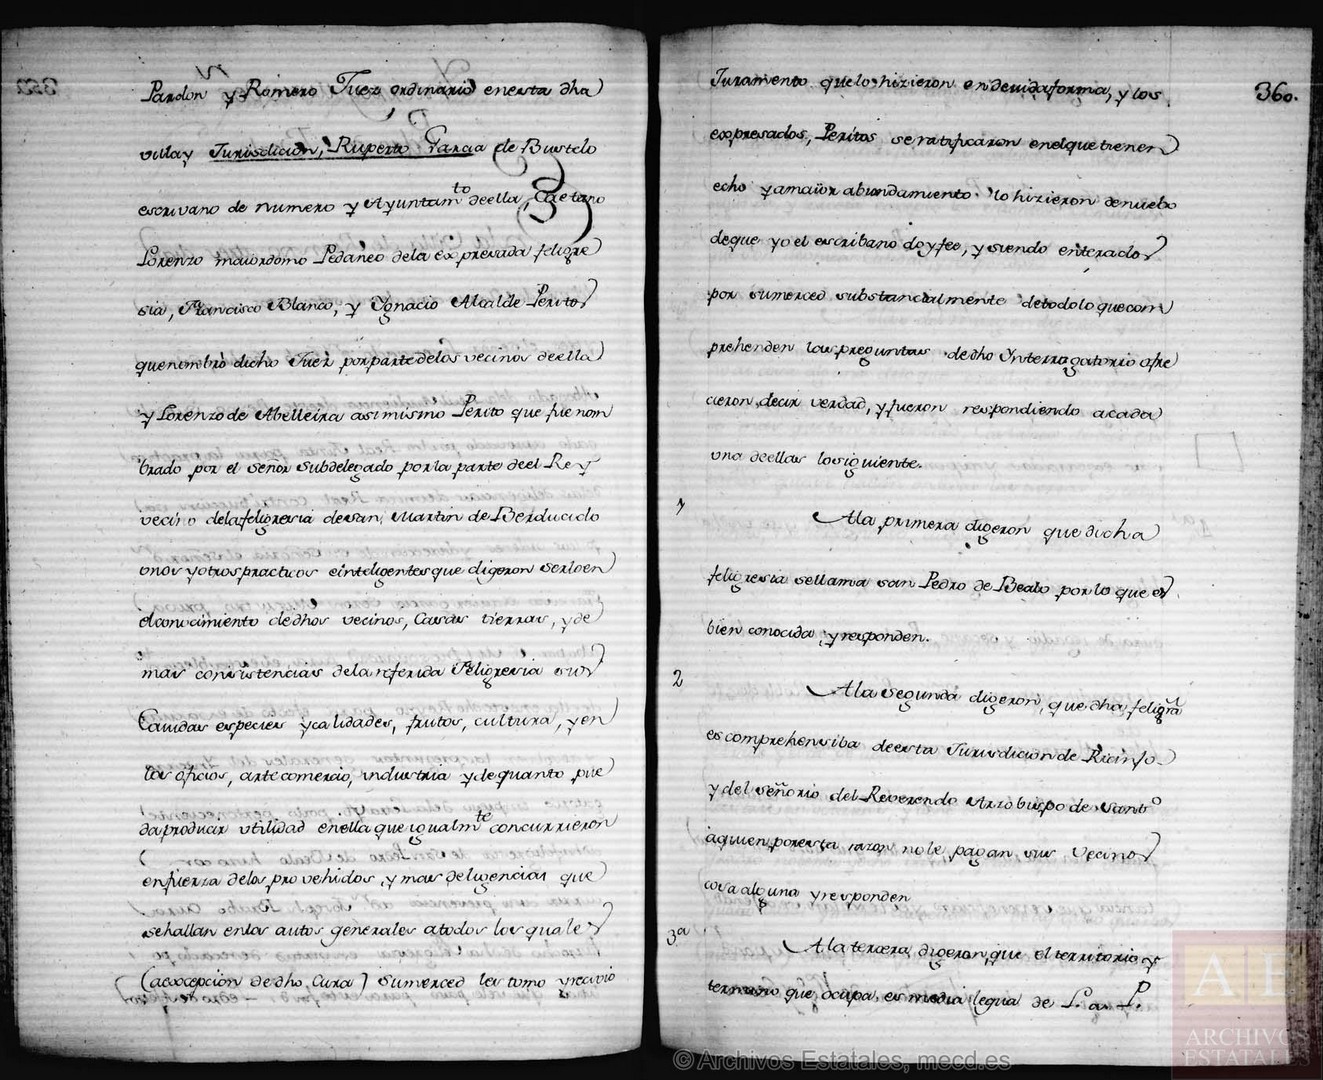 Pardon y Romero Juez ordinario enesta dha
villa y Jurisdicion, Ruperto Garcia de Bustelo
escrivano de numero y Ayuntamto deella, Caetano
Lorenzo maiordomo Pedaneo dela expresada feligre
sia, Francisco Blanco, y Ygnacio Alcalde Peritos
quenombrò dicho Juez porpartedelos vecinos deella
y Lorenzo de Abelleira asimismo Perito que fue nom
brado por el señor subdelegado porla parte deel Rey
vecino delafeligresia desan Martin de Berducido
unos yotros practicos einteligentes que digeron serlo en
el conocimiento dedhos vecinos, Casas tierras, y de
mas consistencias dela referida Feligresia sus
Cavidas especies ycalidades, frutos, cultura, y en
los oficios, arte comercio, industria y de quanto pue
da producir utilidad enella que igualmte concurrieron
enfuerza delos provehidos y mas deligencias que
se hallan enlos autos generales atodos los quales
(aexcepcion dedho Cura) sumerced les tomo yrecivio
360.
Juramento quelo hizieron en devidaforma, y los
expresados, Peritos se ratificaron enelquetienen
echo y amaïor abundamiento lo hizieron denuebo
deque yo el escribano doyfee, y siendo enterados
por sumerced substancialmente detodo lo quecom
prehenden las preguntas dedho Ynterrogatorio ofre
cieron decir verdad, y fueron respondiendo acada
una deellas losiguiente.
1
Ala primera digeron que dicha
feligresia sellama san Pedro de Bealo por lo que es
bien conocida y responden.
2
Ala segunda digeron, que dha feligra
es comprehensiba deesta Jurisdicion de Rioinfo
y del señorio del Reverendo Arzobispo de Santo
àquien poresta razon nole pagan sus Vecinos
cosa alguna y responden
3a
Ala tercera, digeron, que el territorio y
termino que ocupa, es media legua de L. a P.
© Archivos Estatales, mecd.es
AE
ARCHIVOS
ESTATALES